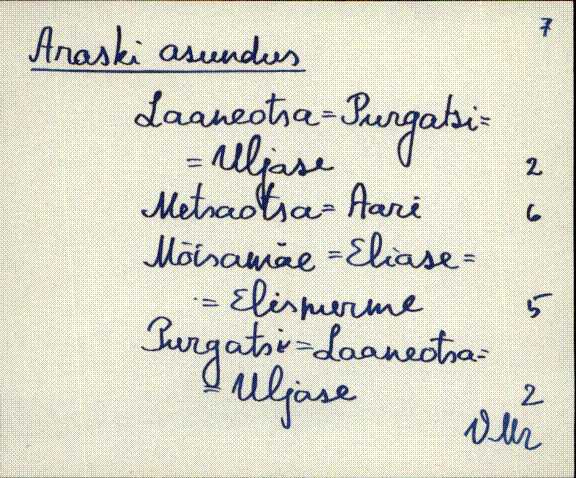 7
Araski asundus
Laaneotsa=Purgatsi=
=Uljase 2
Metsaotsa=Aari 6
Mõisamäe=Eliase=
=Elispurme 5
Purgatsi=Laaneotsa=
=Uljase 2